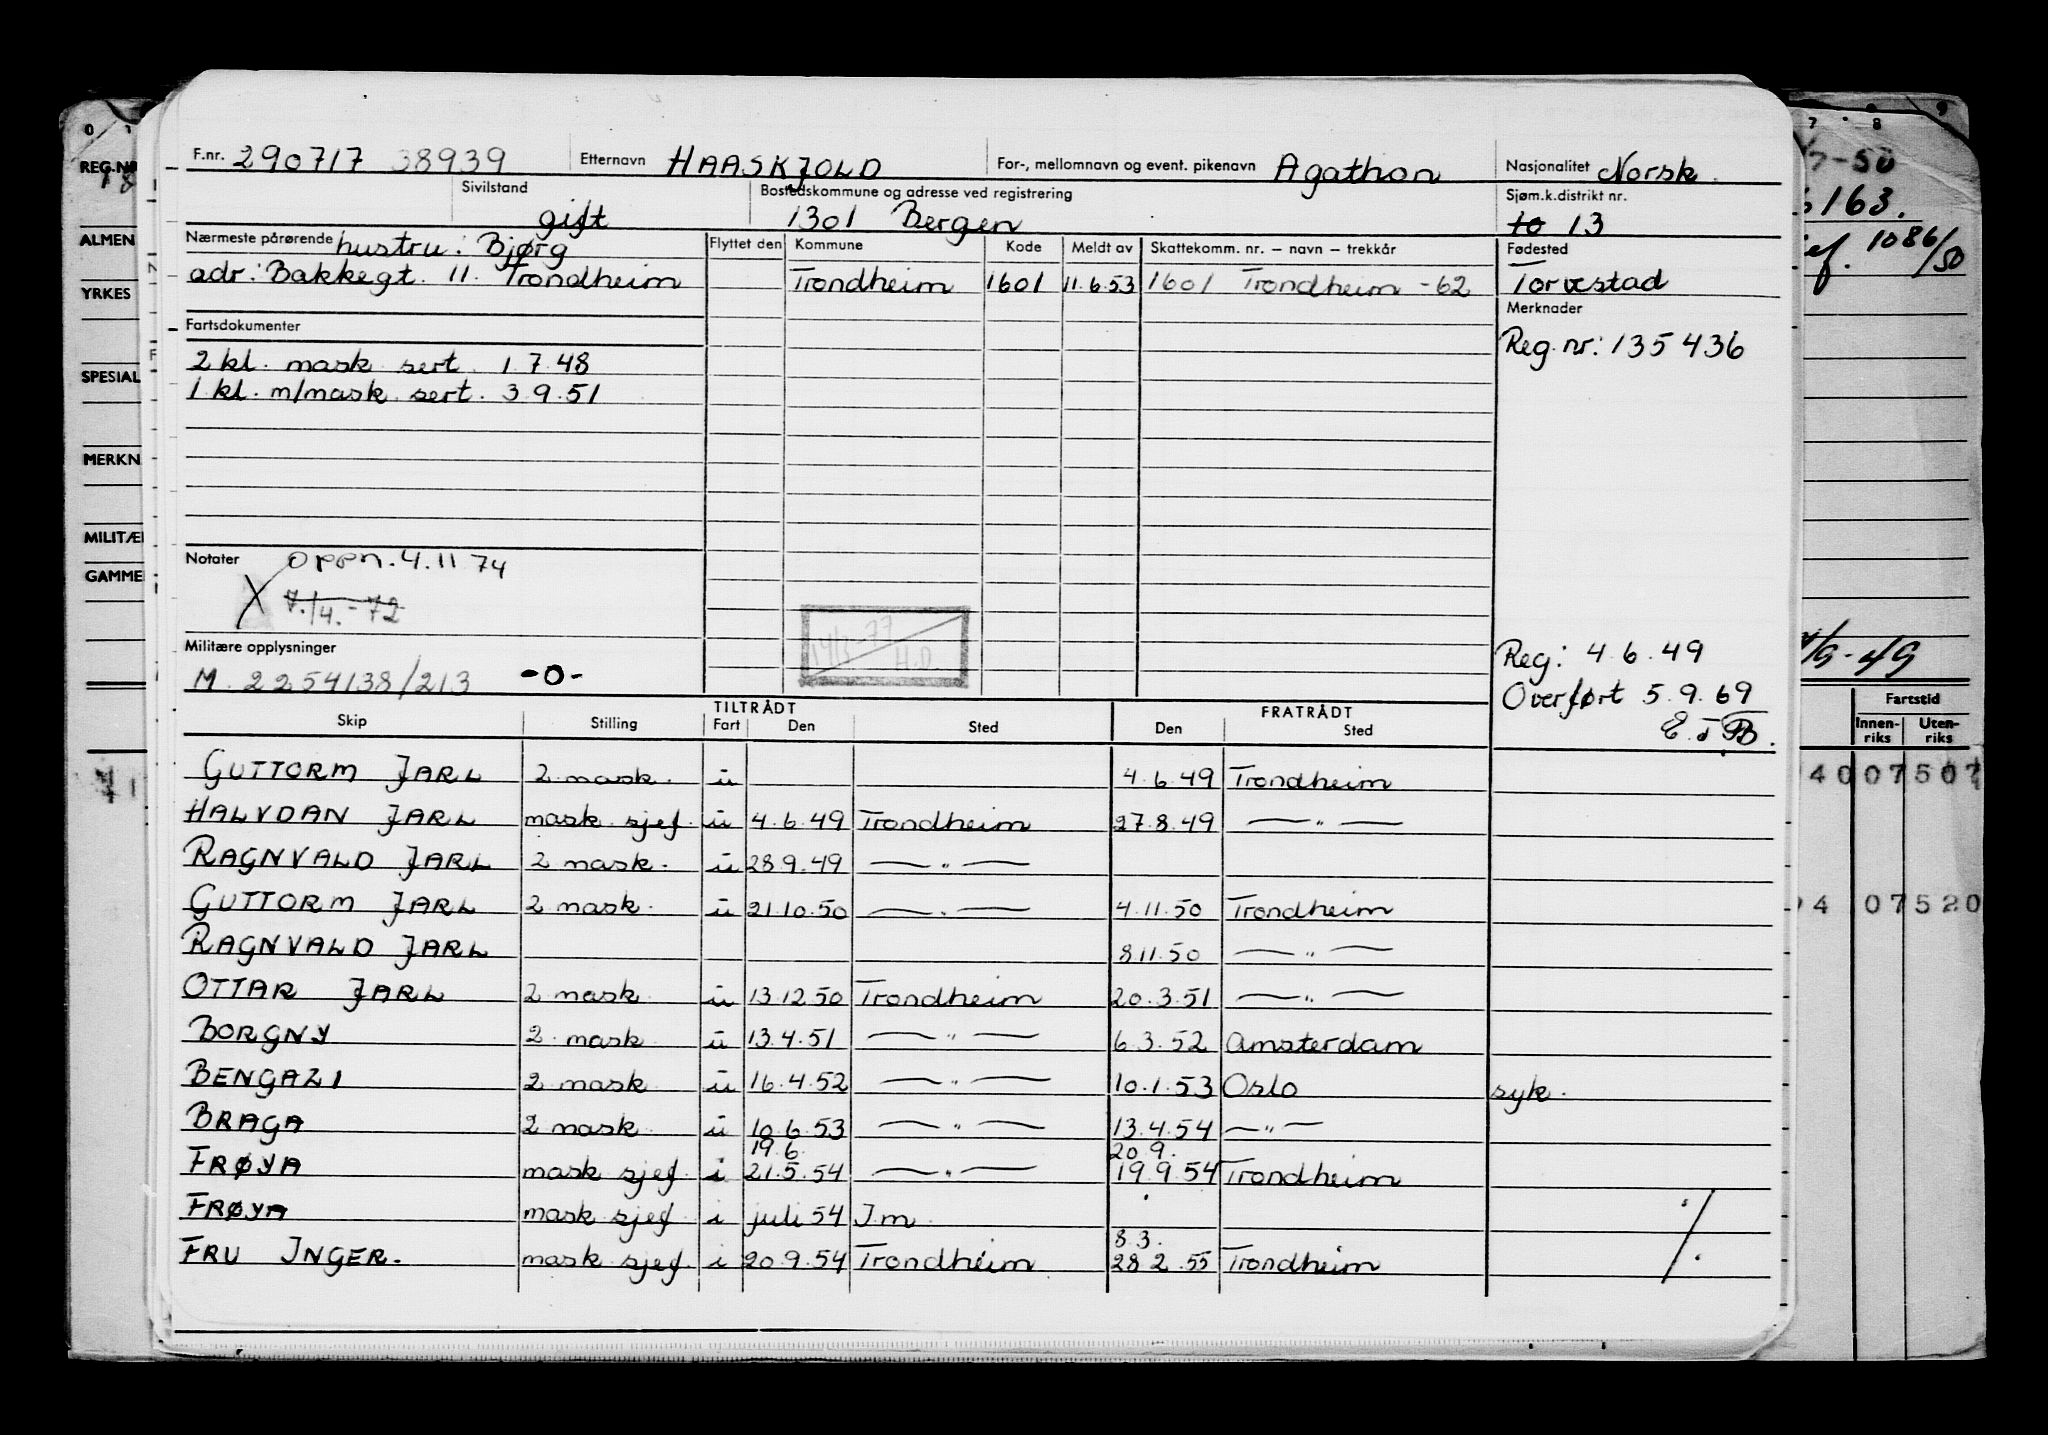 F.nr. 290717 38939 Etternavn HAASKJOLD For-, mellomnavn og event. pikenavn Agathon Nasjonalitet Norsk.
Sivilstand gift Bostedskommune og adresse ved registrering 1301 Bergen Sjøm.k.distrikt nr. 10 13
Nærmeste pårørende hustru: Bjørg Flyttet den Kommune Kode Meldt av Skattekomm. nr. – navn – trekkår Fødested
adr: Bakkegt. 11. Trondheim Trondheim 1601 11.6.53 1601 Trondheim -62 Torvestad
Fartsdokumenter Merknader
Reg. nr: 135436
2 kl. mask sert. 1.7.48
1 kl. m/mask sert. 3.9.51
Notater oppn. 4.11.74
X 7./4.-72
14/3-77 H.D.
Militære opplysninger
M. 2254138/213 -0-
Reg: 4.6.49
Overført 5.9.69
TILTRÅDT FRATRÅDT
Skip Stilling Fart Den Sted Den Sted
GUTTORM JARL 2 mask. u 4.6.49 Trondheim
HALVDAN JARL mask sjef. u 4.6.49 Trondheim 27.8.49 — " —
RAGNVALD JARL 2 mask. u 28.9.49 — " —
GUTTORM JARL 2 mask. u 21.10.50 — " — 4.11.50 Trondheim
RAGNVALD JARL 8.11.50 — " —
OTTAR JARL 2 mask u 13.12.50 Trondheim 20.3.51 — " —
BORGNY 2 mask u 13.4.51 — " — 6.3.52 Amsterdam
BENGAZI 2 mask u 16.4.52 — " — 10.1.53 Oslo syk.
BRAGA 2 mask u 10.6.53 — " — 13.4.54 — " —
19.6. 20.9.
FRØYA mask sjef. i 21.5.54 — " — 19.9.54 Trondheim
FRØYA mask sjef. i juli 54 Im
8.3.
FRU INGER. mask sjef. i 20.9.54 Trondheim 28.2.55 Trondheim
REG.NR
ALMEN
YRKES
SPESIAL
MERKN
MILITÆ
GAMME
7 8 9
-50
163.
ef. 1086/50
/9-49
Fartstid
Innen-riks Uten-riks
4007507
94 07520